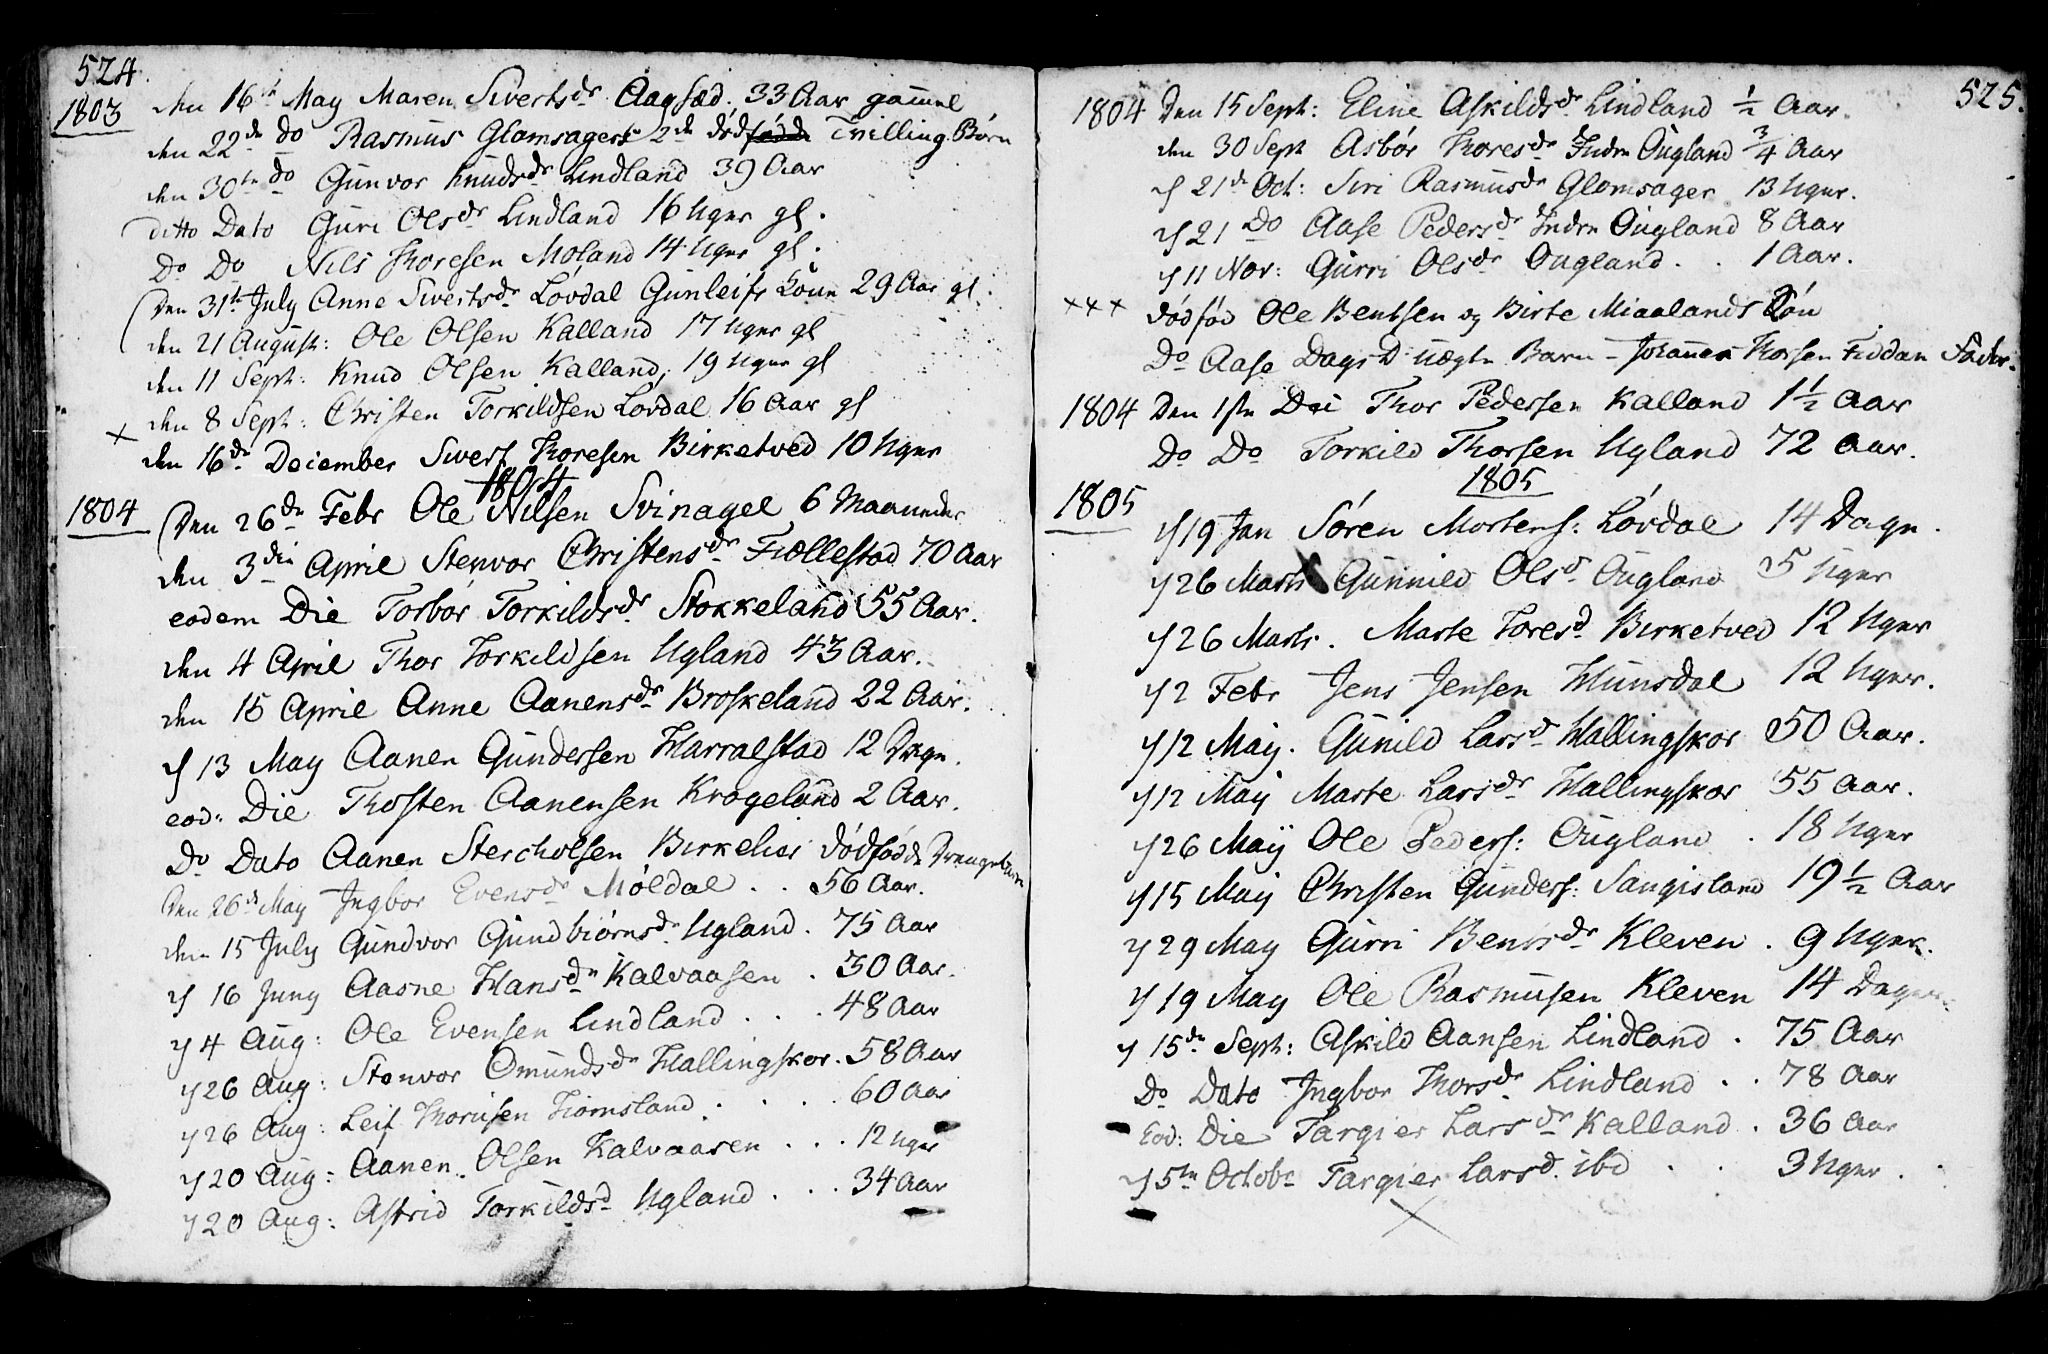 524.
1803 den 16de May Maren Sivertsdr Aagsæd. 33 Aar gammel
den 22de do Rasmus Glomsagers 2de død fødde Tvilling Børn
den 30te do Gunvor Knudsdr Lindland 39 Aar
ditto Dato Guri Olsdr Lindland 16 Uger gl.
Do Do Nils Thoresen Moland 14 Uger gl.
Den 31te July Anne Sivertsdr Løvdal Gunleifs Kone 29 Aar gl.
den 21 August: Ole Olsen Kalland 17 Uger gl
den 11 Sept: Knud Olsen Kalland, 19 Uger gl
den 8 Sept: Christen Torkildsen Lovdal 16 Aar gl
x den 16de December Sivert Thoresen Birketved 10 Uger
1804
1804 Den 26de Febr Ole Nilsen Svinagel 6 Maaneder
den 3die April Stenvor Christensdr Fiællestad 70 Aar
eodem Die Torbor Torkildsdr Stokkeland 55 Aar.
den 4 April Thor Torkildsen Ugland 43 Aar.
den 15 April Anne Aanensdr Broskeland 22 Aar.
d 13 May Aanen Gundersen Harralstad 12 Dage.
eod: Die Thosten Aanensen Krageland 2 Aar.
Do Dato Aanen Stercholsen Birkelier dødfødde Drengebarn
Den 26de May Ingbor Evensdr Møldal . . 56 Aar.
den 15 July Gundvor Gundbiørnsdr Ugland. 75 Aar
d 16 Juny Aasne Hansdr Kalvaasen . 30 Aar.
d 4 Aug: Ole Evensen Lindland . . . 48 Aar
d 26 Aug: Stenvor Omundsdr Hallingskor. 58 Aar
d 26 Aug: Leif Thorisen Hiomsland . . . . 60 Aar
d 20 Aug: Aanen Olsen Kalvaasen . . . 12 Uger
d 20 Aug: Astrid Torkildsd Ugland . . . 34 Aar
525.
1804 Den 15 Sept: Eline Askildsdr Lindland 1/2 Aar.
den 30 Sept Asbør Thoresdr Indre Øugland 3/4 Aar
d 21de Oct: Siri Rasmusdr Glomsager 13 Uger.
d 21 Do Aase Pedersdr Indre Ougland 8 Aar
d 11 Nov: Gurri Olsdr Ougland . . 1 Aar.
xxx dødfød Ole Bentsen og Birte Miaalands Søn
Do Aase Dags D uægte Barn - Johannes Thorsen Fiddan Fader.
1804 Den 1ste Dec Thor Pedersen Kalland 1 1/2 Aar
Do Do Torkild Thorsen Ugland 72 Aar.
1805
1805 d 19 Jan Søren Mortens: Løvdal 14 Dage.
d 26 Marts Gunnild Olsd Ougland 5 Uger
d 26 Marts. Marte Toresd Birketved 12 Uger
d 2 Febr Jens Jensen Hunsdal 12 Uger.
d 12 May. Gunild Larsd Hallingskor 50 Aar.
d 12 May Marte Larsdr Hallingskor 55 Aar.
d 26 May Ole Peders: Ougland . 18 Uger
d 15 May Christen Gunders: Sangisland 19 1/2 Aar
d 29 May Gurri Bentsdr Kleven . 9 Uger.
d 19 May Ole Rasmusen Kleven 14 Dager.
d 15de Sept: Askild Aansen Lindland . 75 Aar
Do Dato Ingbor Thorsdr Lindland . . 78 Aar
Eod: Die Targier Larsdr Kalland . 36 Aar
d 5te Octobr Targier Larsd. ibd . . 3 Uger .
x